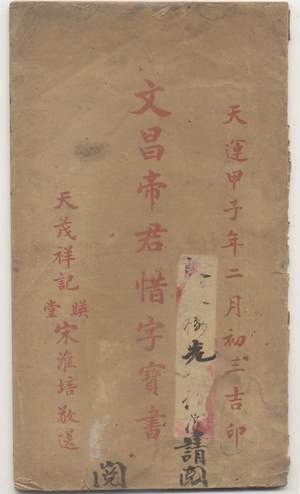 天運甲子年二月初三吉印
文昌帝君惜字寶書
天茂祥記
堂
宋淮培敬送
先
請閱
閱